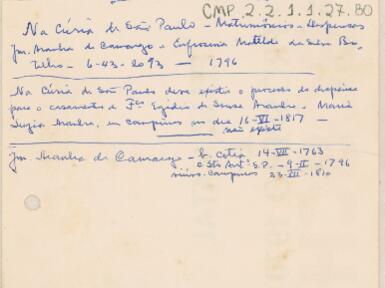 CMP.2.2.1.1.27.80
Na Cúria de São Paulo - Matrimônios - Dispensas
Jm. Aranha de Camargo e Eufrosina Matilde da Silva Bo
telho - 6-43-2093 - 1796
Na Cúria de São Paulo deve existir o processo de dispensa
para o casamento de Fco Egidio de Souza Aranha e Maria
Luzia Aranha, em Campinas no dia 16-VI-1817 -
não existe
Jm. Aranha de Camargo - b. Cotia 14-VII-1763
c. Sto Ant. S.P. - 9-II-1796
Campinas 23-III-1810